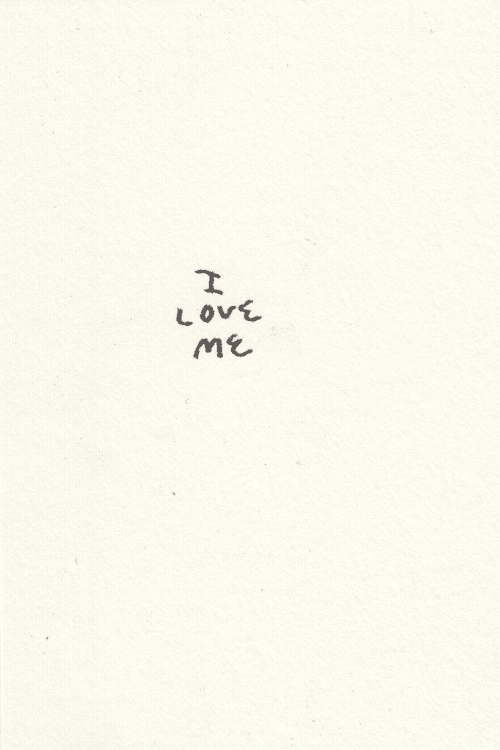 I
LOVE
ME